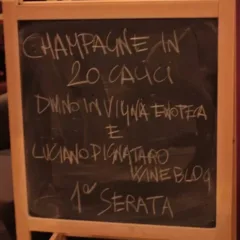 CHAMPAGNE IN
20 CALICI
DIVINO IN VIGNA ENOTECA
E
LUCIANO PIGNATARO
WINEBLOG
1a SERATA